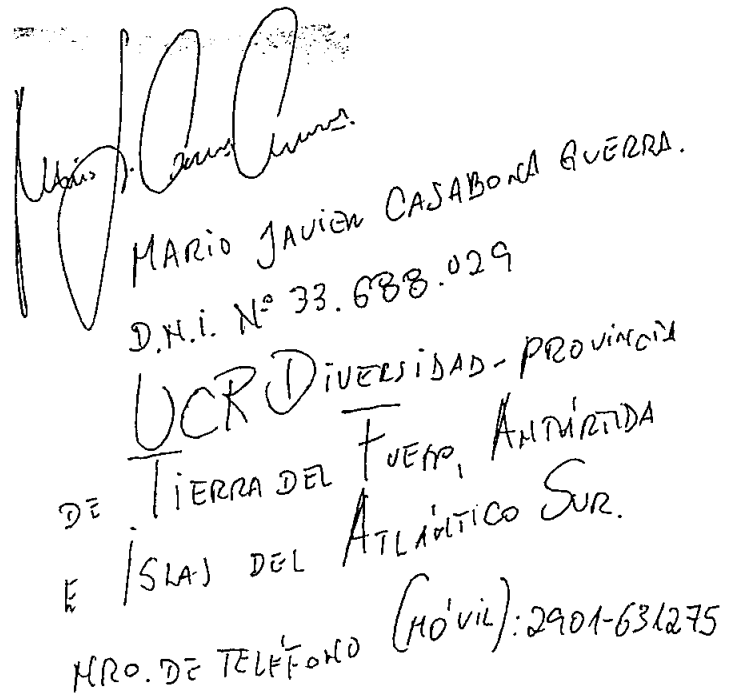 Mario J. Casabona Guerra.
MARIO JAVIER CASABONA GUERRA.
D.N.I. Nº 33.688.029
UCR DIVERSIDAD - PROVINCIA
DE TIERRA DEL FUEGO, ANTÁRTIDA
E ISLAS DEL ATLÁNTICO SUR.
NRO. DE TELÉFONO (MÓVIL): 2901-631275